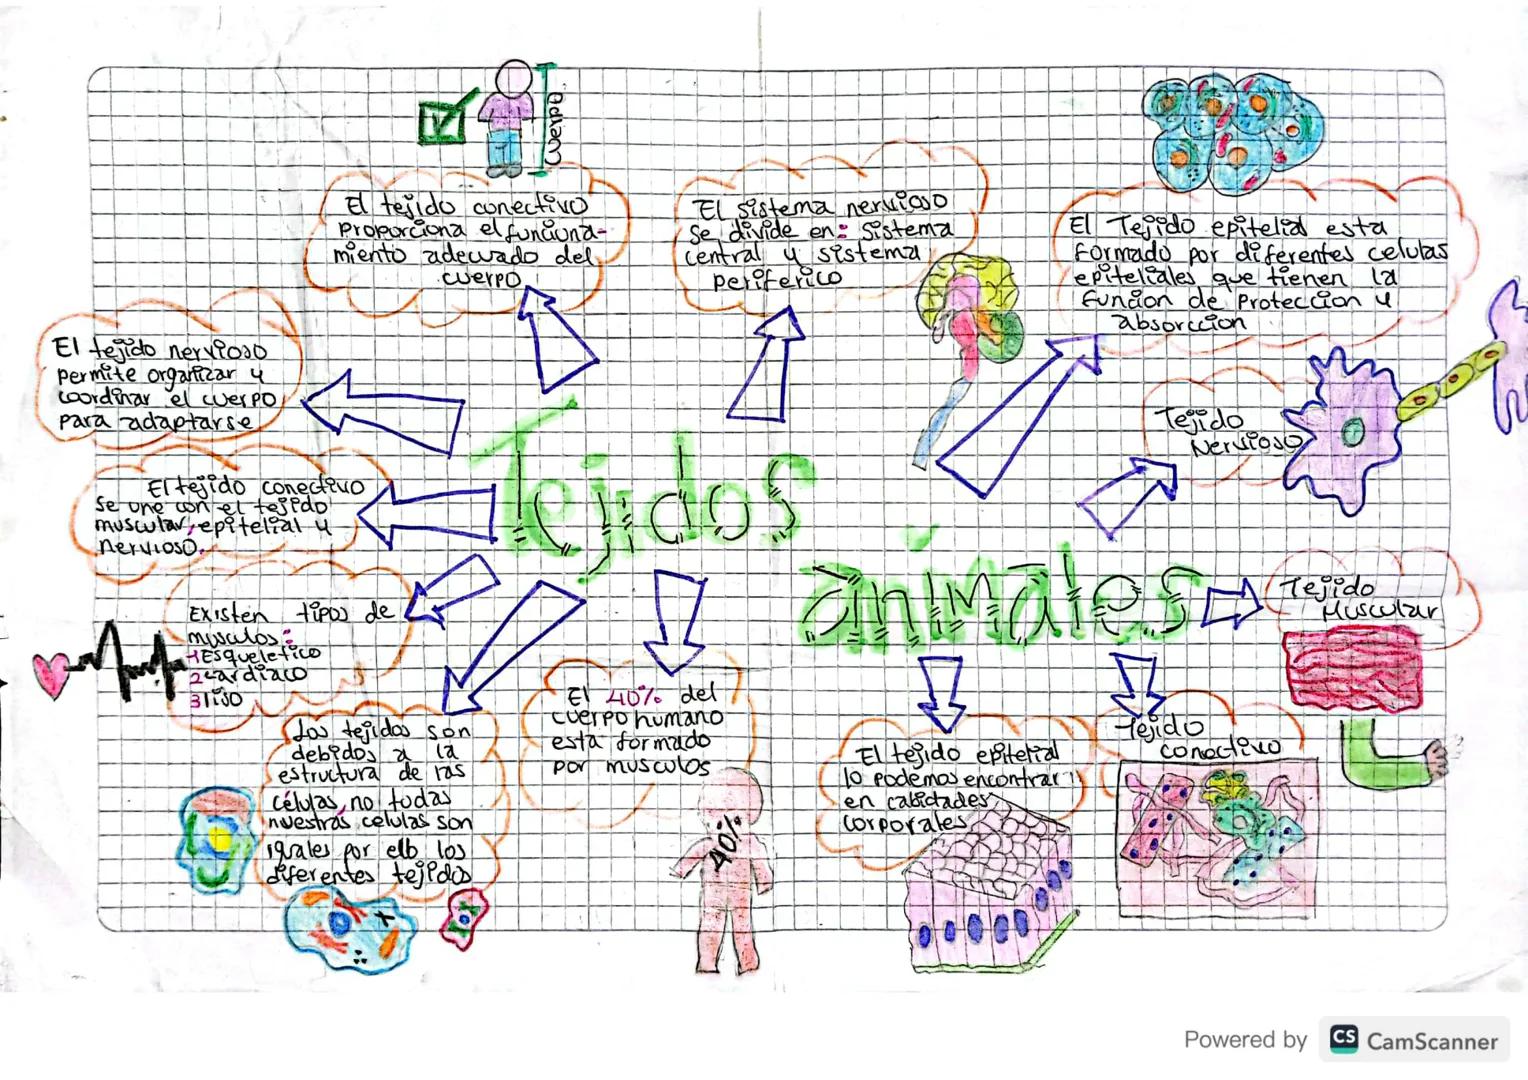 cuerpo
El tejido conectivo
proporciona el funciona-
miento adecuado del
cuerpo
El sistema nervioso
se divide en: sistema
central y sistema
periferico
El Tejido epitelial esta
formado por diferentes celulas
epiteliales que tienen la
funcion de proteccion y
absorccion
El tejido nervioso
permite organizar y
coordinar el cuerpo
para adaptarse
Tejido
Nervioso
El tejido conectivo
se une con el tejido
muscular, epitelial y
nervioso.
Tejidos
animales
Existen tipos de
musculos:
1 Esqueletico
2 cardiaco
3 liso
Tejido
Muscular
Los tejidos son
debidos a la
estructura de las
células, no todas
nuestras celulas son
igrales por ello los
diferentes tejidos
El 40% del
cuerpo humano
esta formado
por musculos
40%
El tejido epitelial
lo podemos encontrar
en cabidades
corporales
Tejido
conectivo
Powered by CS CamScanner